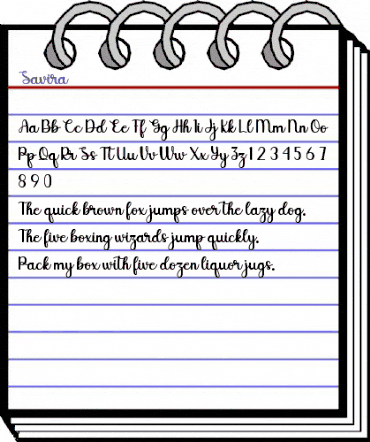 Savira
Aa Bb Cc Dd Ee Ff Gg Hh Ii Jj Kk Ll Mm Nn Oo
Pp Qq Rr Ss Tt Uu Vv Ww Xx Yy Zz 1 2 3 4 5 6 7
8 9 0
The quick brown fox jumps over the lazy dog.
The five boxing wizards jump quickly.
Pack my box with five dozen liquor jugs.